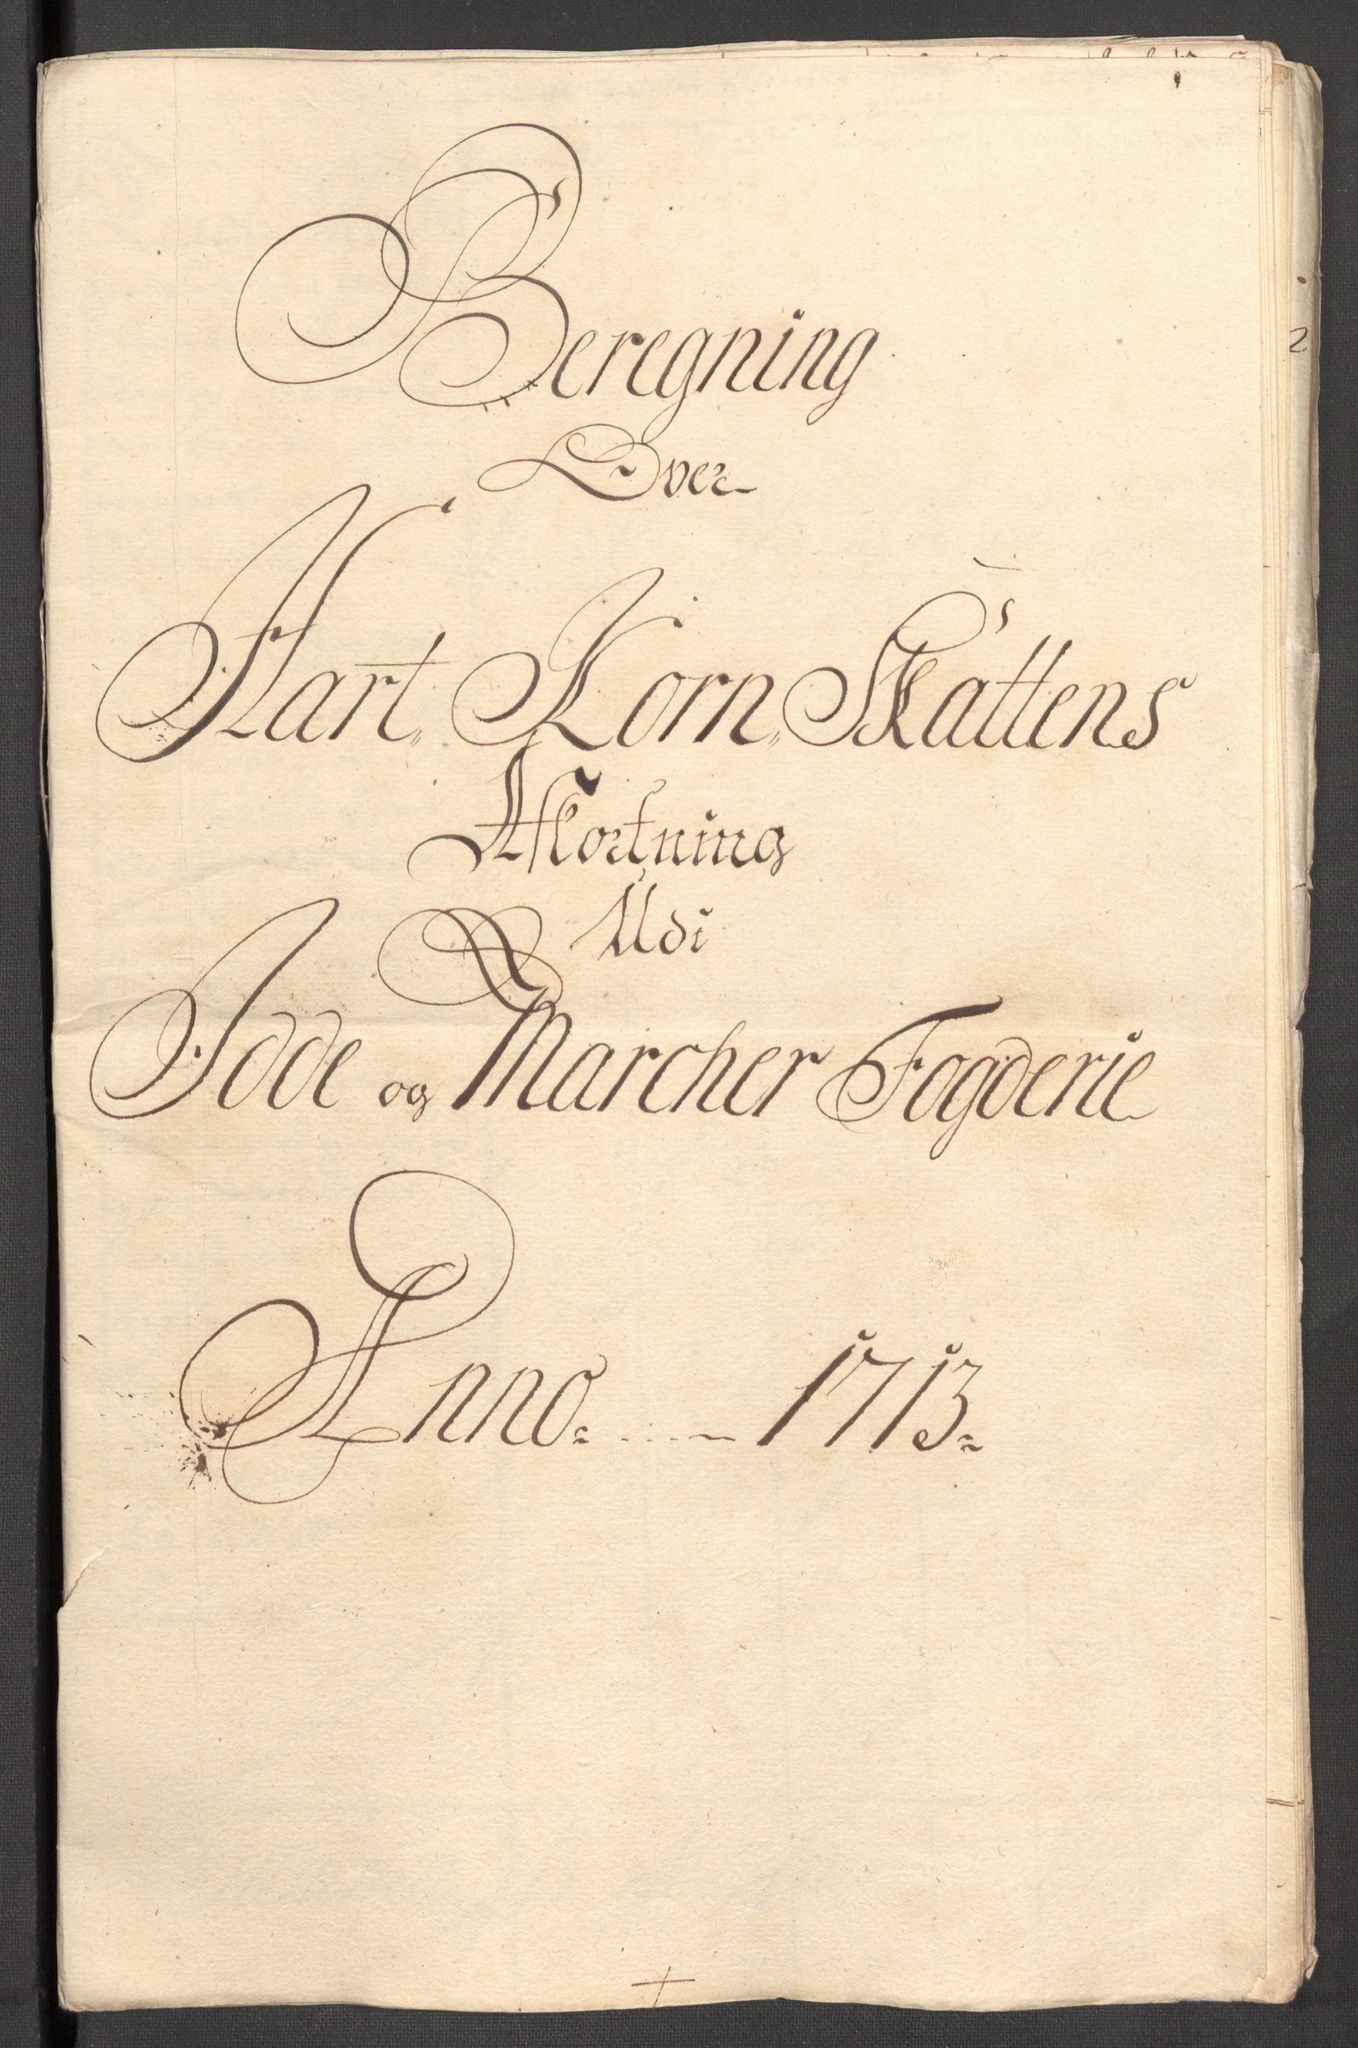 Beregning
Over
Hart Korn Skattens
Afkortning
Udi
Idde og Marcher Fogderie
Anno. 1713.
2